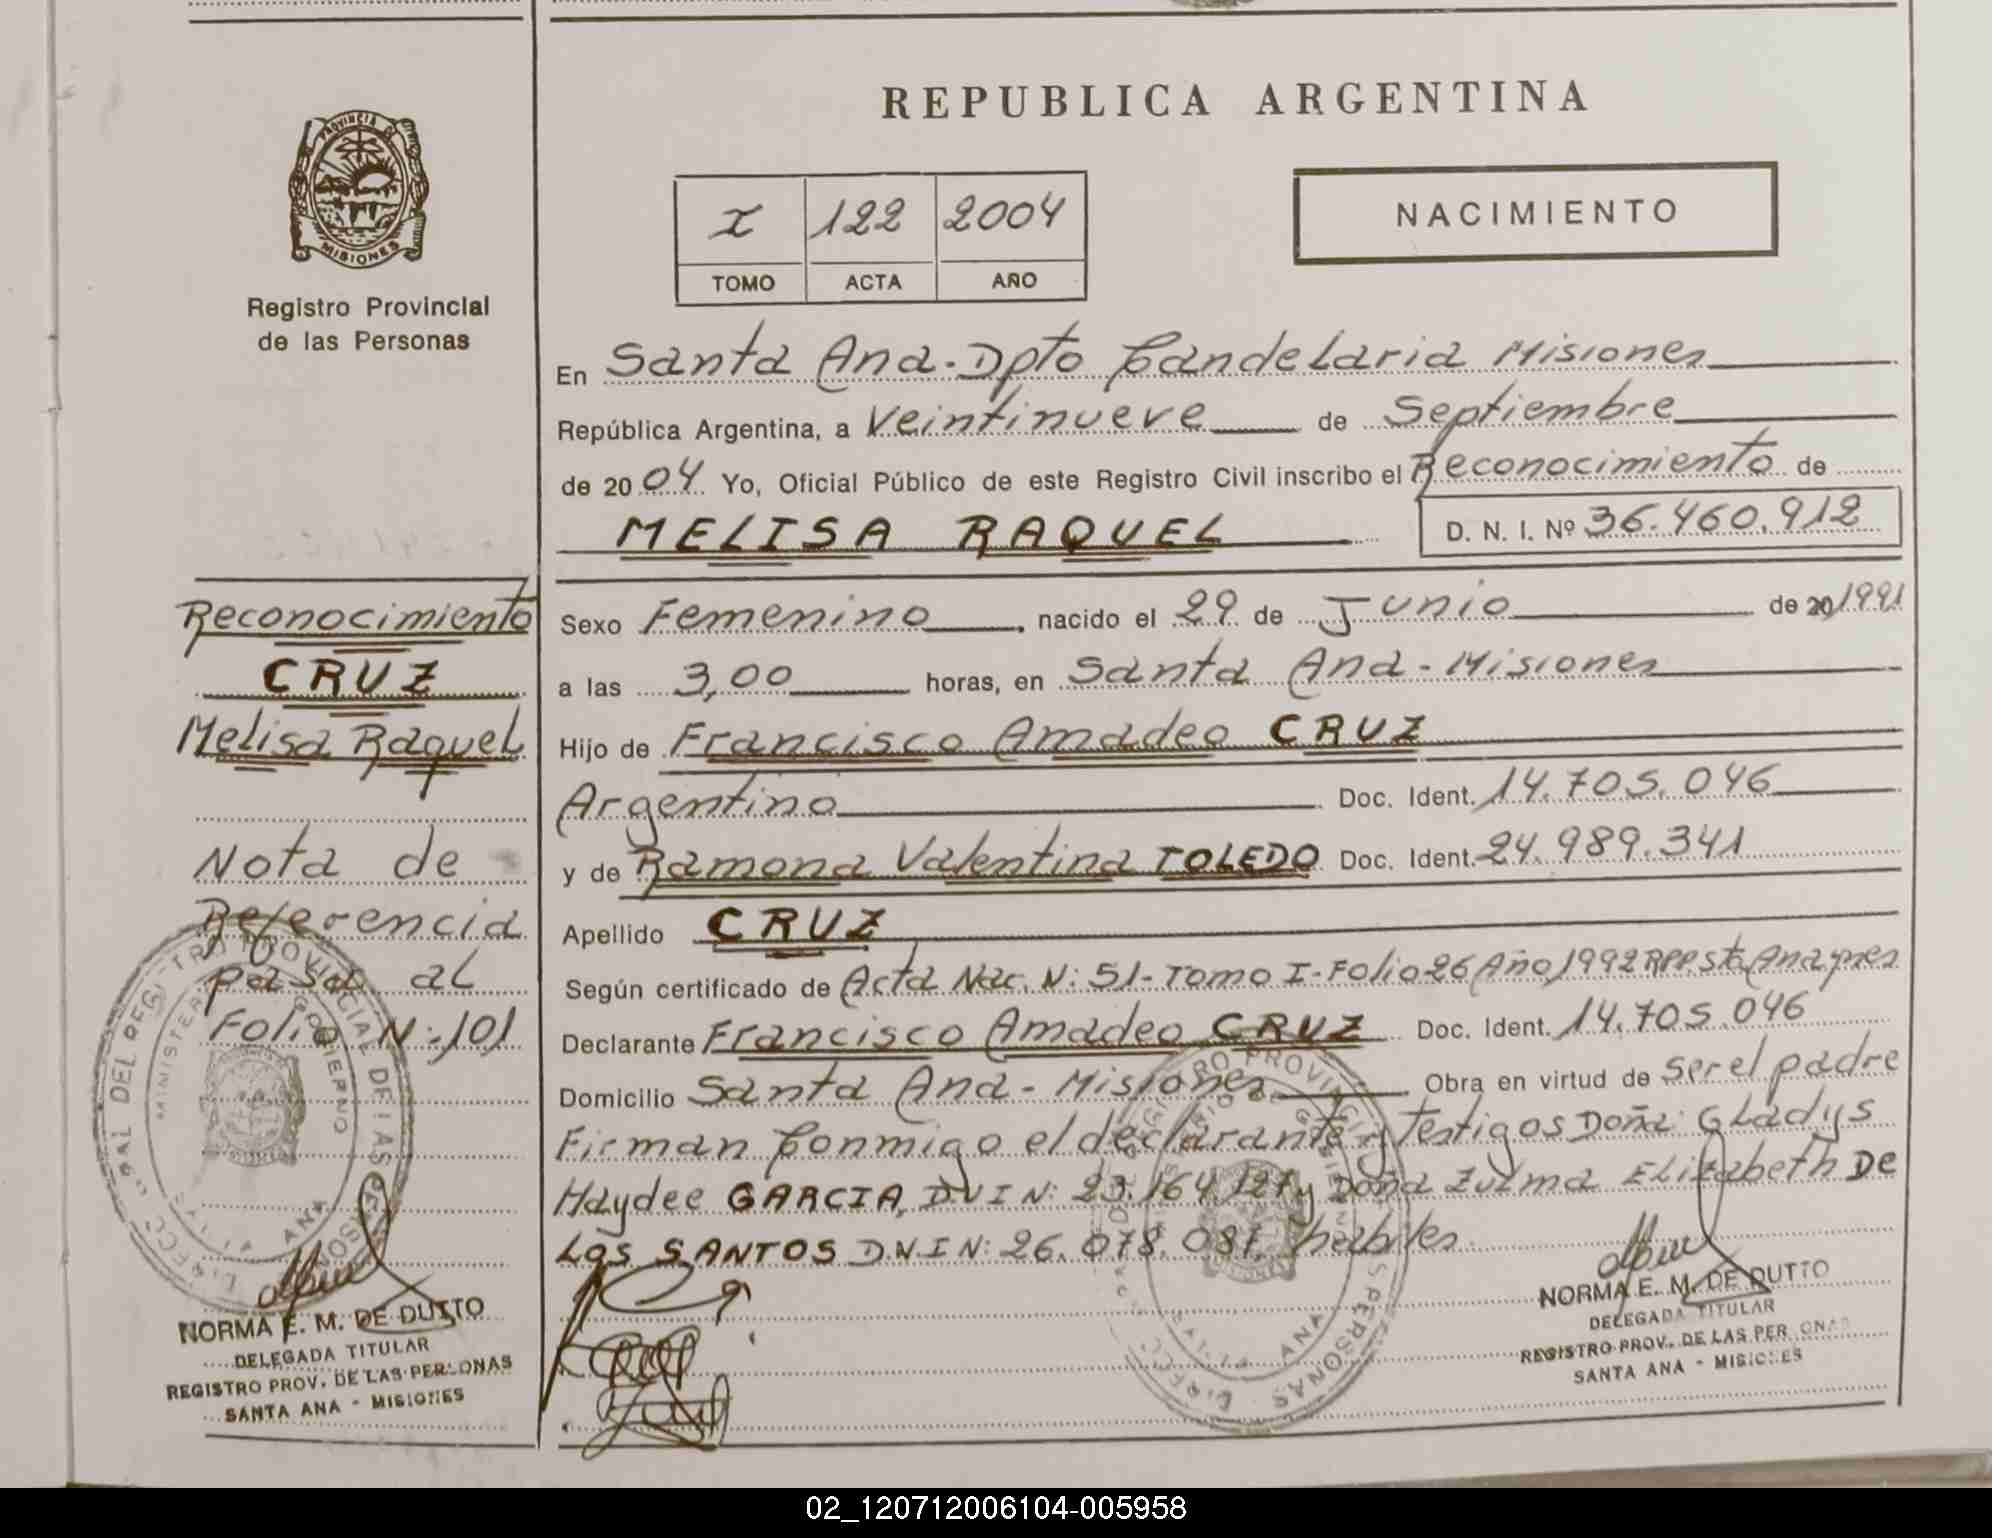 PROVINCIA DE MISIONES
Registro Provincial
de las Personas
Reconocimiento
CRUZ
Melisa Raquel
Nota de
Referencia
pasa al
Folio N: 101
NORMA E. M. DE DUTTO
DELEGADA TITULAR
REGISTRO PROV. DE LAS PERSONAS
SANTA ANA - MISIONES
REPUBLICA ARGENTINA
I 122 2004
TOMO ACTA AÑO
NACIMIENTO
En Santa Ana - Dpto Candelaria Misiones
República Argentina, a Veintinueve de Septiembre
de 2004 Yo, Oficial Público de este Registro Civil inscribo el Reconocimiento de
MELISA RAQUEL D. N. I. Nº 36.460.912
Sexo Femenino, nacido el 29 de Junio de 20 1991
a las 3,00 horas, en Santa Ana - Misiones
Hijo de Francisco Amadeo CRUZ
Argentino Doc. Ident. 14.705.046
y de Ramona Valentina TOLEDO Doc. Ident. 24.989.341
Apellido CRUZ
Según certificado de Acta Nac. N: 51 - Tomo I - Folio 26 Año 1992 RPP. Sta Ana pres
Declarante Francisco Amadeo CRUZ Doc. Ident. 14.705.046
Domicilio Santa Ana - Misiones Obra en virtud de ser el padre
Firman Conmigo el declarante y Testigos Doña: Gladys
Haydee GARCIA, DNI N: 23.164.127 y Doña Zulma Elizabeth DE
LOS SANTOS D.N.I N: 26.078.087, habiles
NORMA E. M. DE DUTTO
DELEGADA TITULAR
REGISTRO PROV. DE LAS PERSONAS
SANTA ANA - MISIONES
02_120712006104-005958